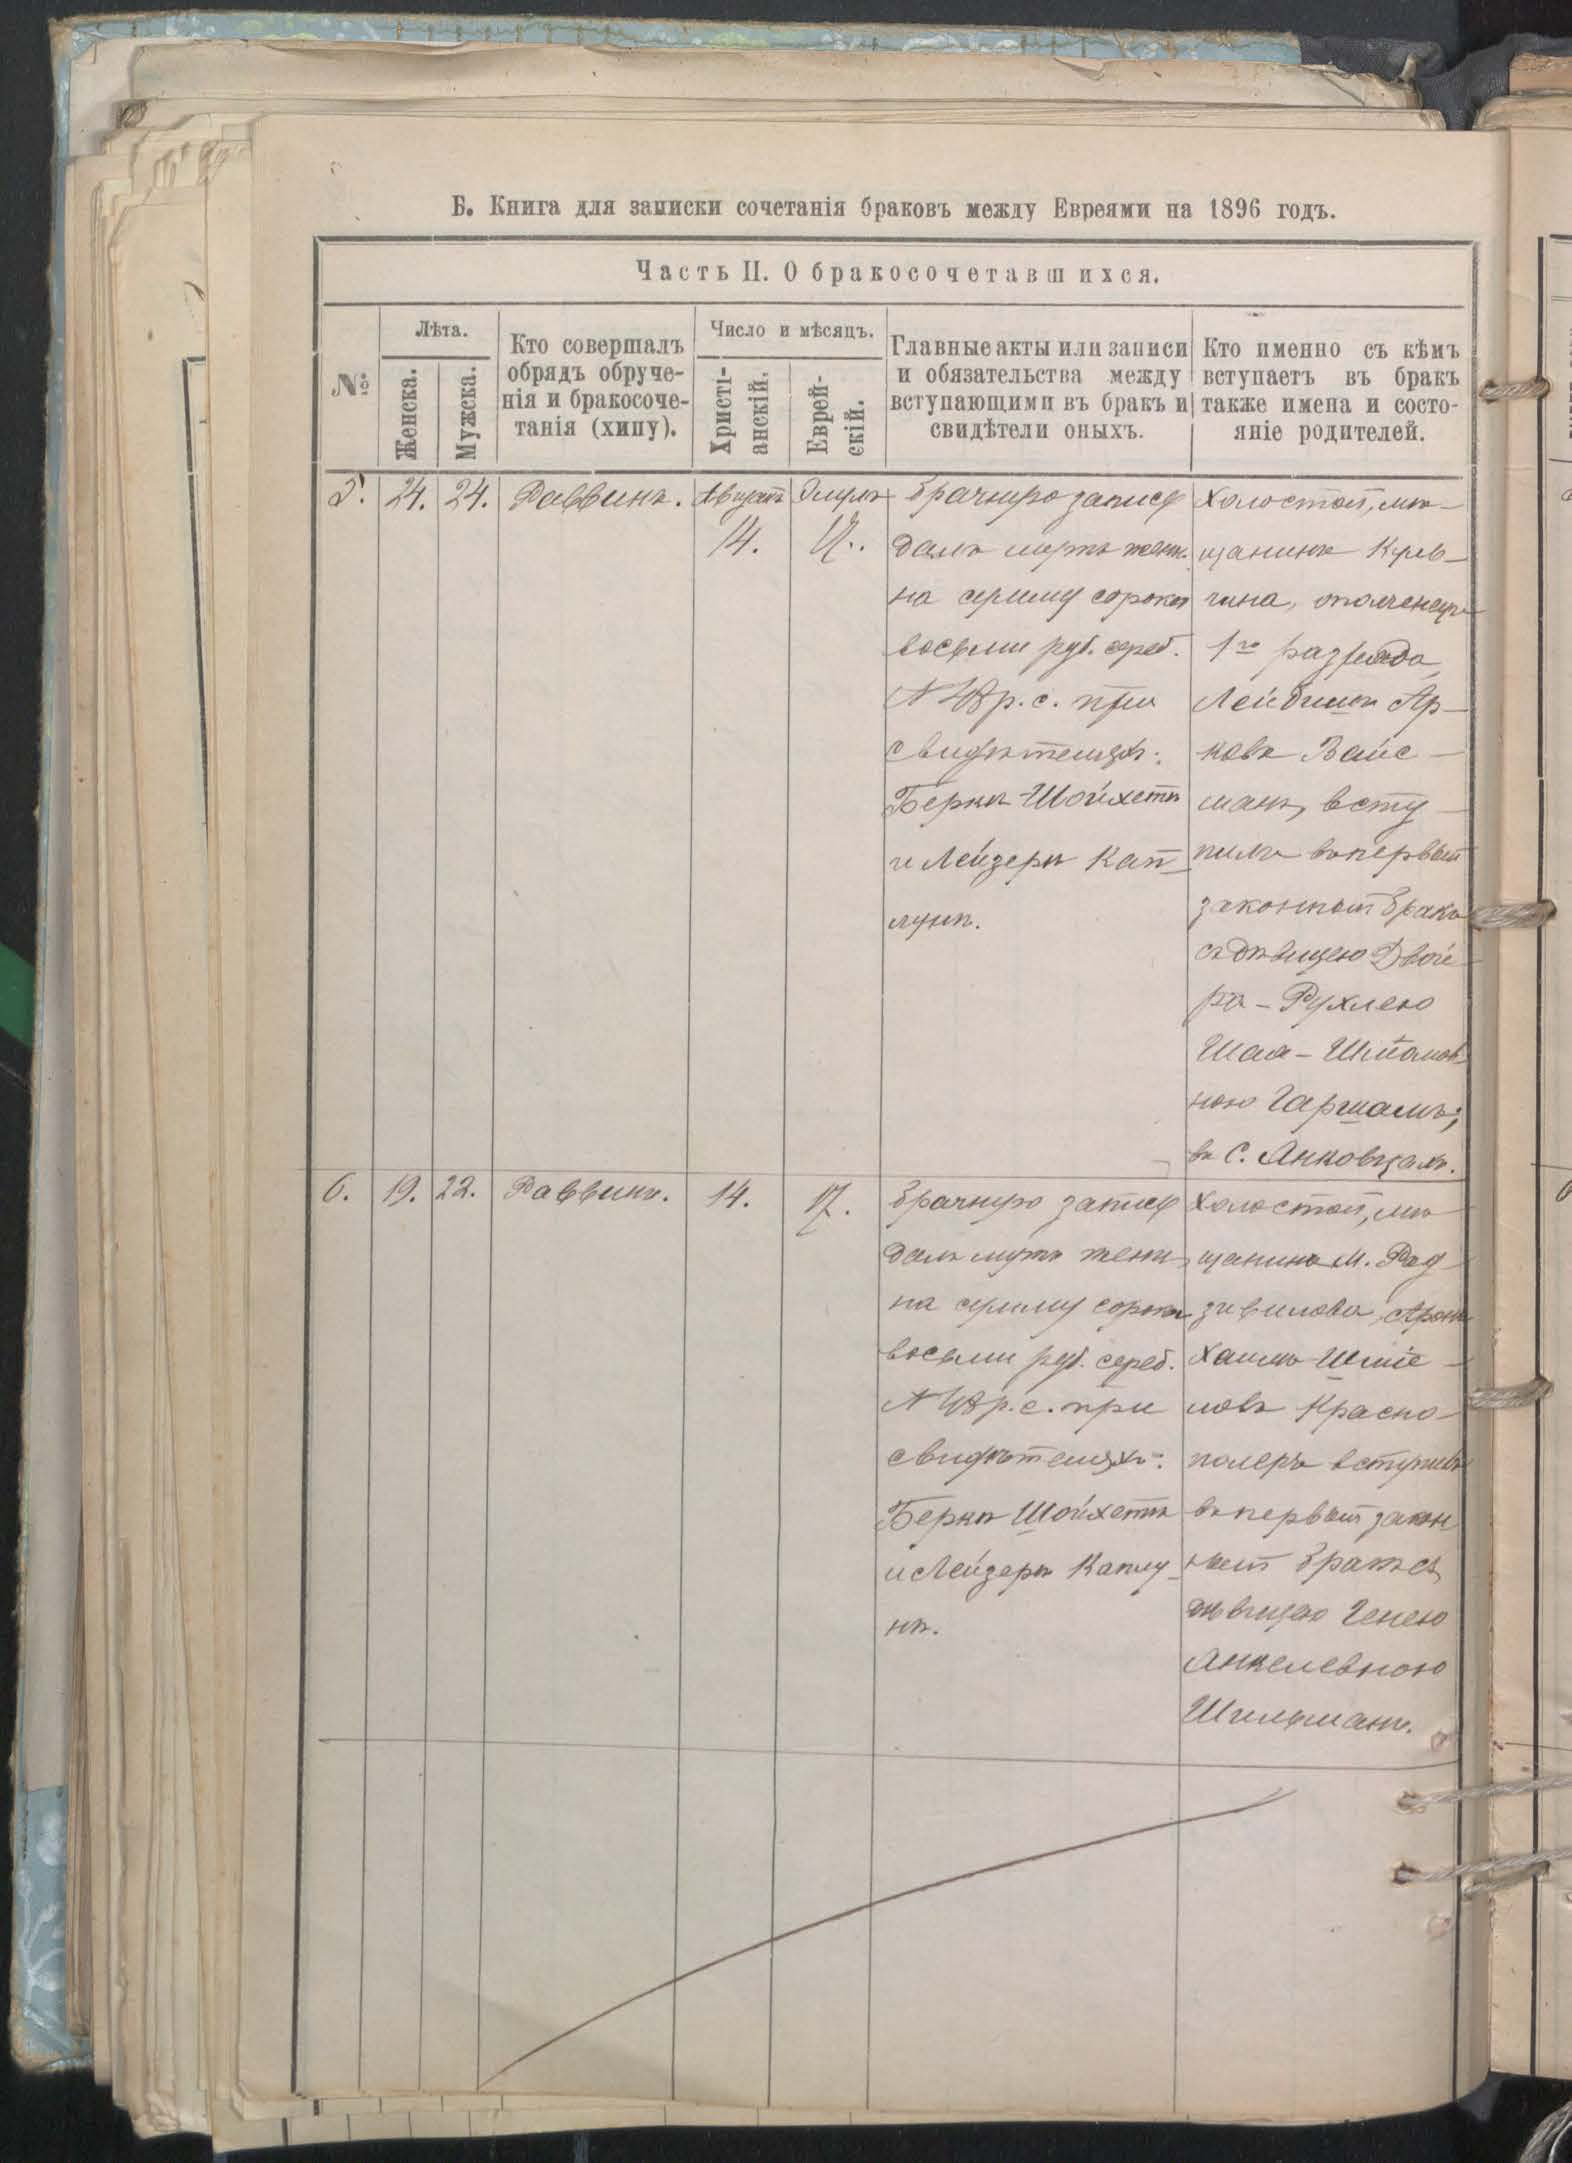 Б. Книга для записки сочетанія браковъ между Евреями на 1896 годъ.
Часть II. О бракосочетавшихся.
№
Лѣта.
Женска.
Мужска.
Кто совершалъ
обрядъ обруче-
нія и бракосоче-
танія (хипу).
Число и мѣсяцъ.
Христі-
анскій.
Еврей-
скій.
Главные акты или записи
и обязательства между
вступающими въ бракъ и
свидѣтели оныхъ.
Кто именно съ кѣмъ
вступаетъ въ бракъ
также имена и состо-
яніе родителей.
5. 24. 24. Раввинъ. Августъ 14. Элулъ 17.
Брачную запись
далъ мужъ женѣ
на сумму сорокъ
восемь руб. сереб.
№ 48 р. с. при
свидѣтеляхъ:
Беркѣ Шойхетъ
и Лейзерѣ Кап-
лунъ.
Холостой, мѣ-
щанинъ Кунев-
ополченецъ
1го разряда,
Лейбишъ Ар-
ковъ Вайс-
манъ, всту-
пилъ въ первый
законный бракъ
съ дѣвицею Двой-
ра-Рухлею
Шая-Шліомов-
ною Гаршамъ;
въ С. Янковцахъ.
6. 19. 22. Раввинъ. 14. 17.
Брачную запись
далъ мужъ женѣ
на сумму сорокъ
восемь руб. сереб.
№ 48 р. с. при
свидѣтеляхъ:
Беркѣ Шойхетъ
и Лейзерѣ Каплу-
нъ.
Холостой, мѣ-
щанинъ М. Рад-
зивилова, Аронъ
Хаимъ Шміе-
ловъ Красно-
полеръ вступилъ
въ первый закон
ный бракъ съ
дѣвицею Генею
Янкелевною
Шильманъ.